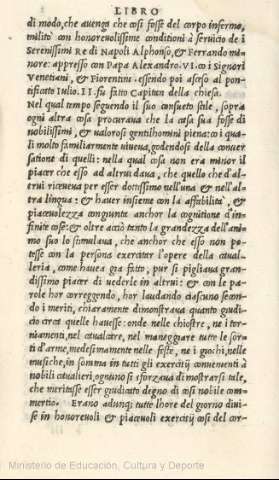 LIBRO
di modo, che auenga che cosi fosse del corpo infermo,
militò con honoreuolissime conditioni à seruitio de i
Serenissimi Re di Napoli Alphonso, & Ferrando mi-
nore: appresso con Papa Alexandro. VI. co i Signori
Venetiani, & Fiorentini. essendo poi asceso al ponti-
ficato Iulio. II. fu fatto Capitan della chiesa.
Nel qual tempo seguendo il suo consueto stile, sopra
ogni altra cosa procuraua che la casa sua fosse di
nobilissimi, & ualorosi gentilhomini piena: co i qua-
li molto familiarmente uiueua, godendosi della conuer
satione di quelli: nella qual cosa non era minor il
piacer che esso ad altrui daua, che quello che d'al-
trui riceueua per esser dottissimo nell'una & nell'al-
tra lingua: & hauer insieme con la affabilità, &
piaceuolezza congiunta anchor la cognitione d'in-
finite cose: & oltre acciò tanto la grandezza dell'ani-
mo suo lo stimulaua, che anchor che esso non po-
tesse con la persona exercitar l'opere della caual-
leria, come hauea gia fatto, pur si pigliaua gran-
dissimo piacer di uederle in altrui: & con le pa-
role hor correggendo, hor laudando ciascuno secon-
do i meriti, chiaramente dimonstraua quanto giudi-
cio circa quelle hauesse: onde nelle chiostre, ne i tor-
niamenti, nel caualcare, nel maneggiare tutte le sor-
ti d'arme, medesimamente nelle feste, ne i giochi, nelle
musiche, in somma in tutti gli exercitij conuenienti à
nobili caualieri, ogniuno si sforzaua di mostrarsi tale,
che meritasse esser giudicato degno di cosi nobile com-
mertio. Erano adunq; tutte l'hore del giorno diui-
se in honoreuoli & piaceuoli exercitij cosi del cor-
Ministerio de Educación, Cultura y Deporte